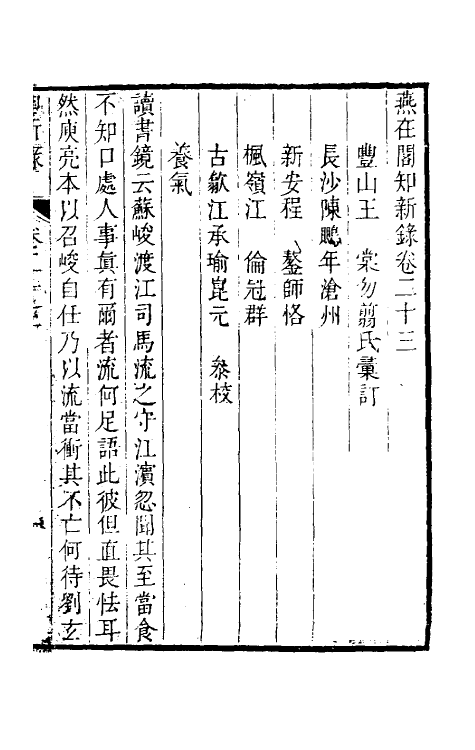 燕在閣知新錄卷二十三
豐山王 棠勿翦氏彙訂
長沙陳鵬年滄州
新安程 鏊師恪
楓嶺江 倫冠群
古歙江承瑜崑元 叅校
養氣
讀書鏡云蘇峻渡江司馬流之守江濱忽聞其至當食
不知口處人事眞有爾者流何足語此彼但直畏怯耳
然庾亮本以召峻自任乃以流當衝其不亡何待劉玄